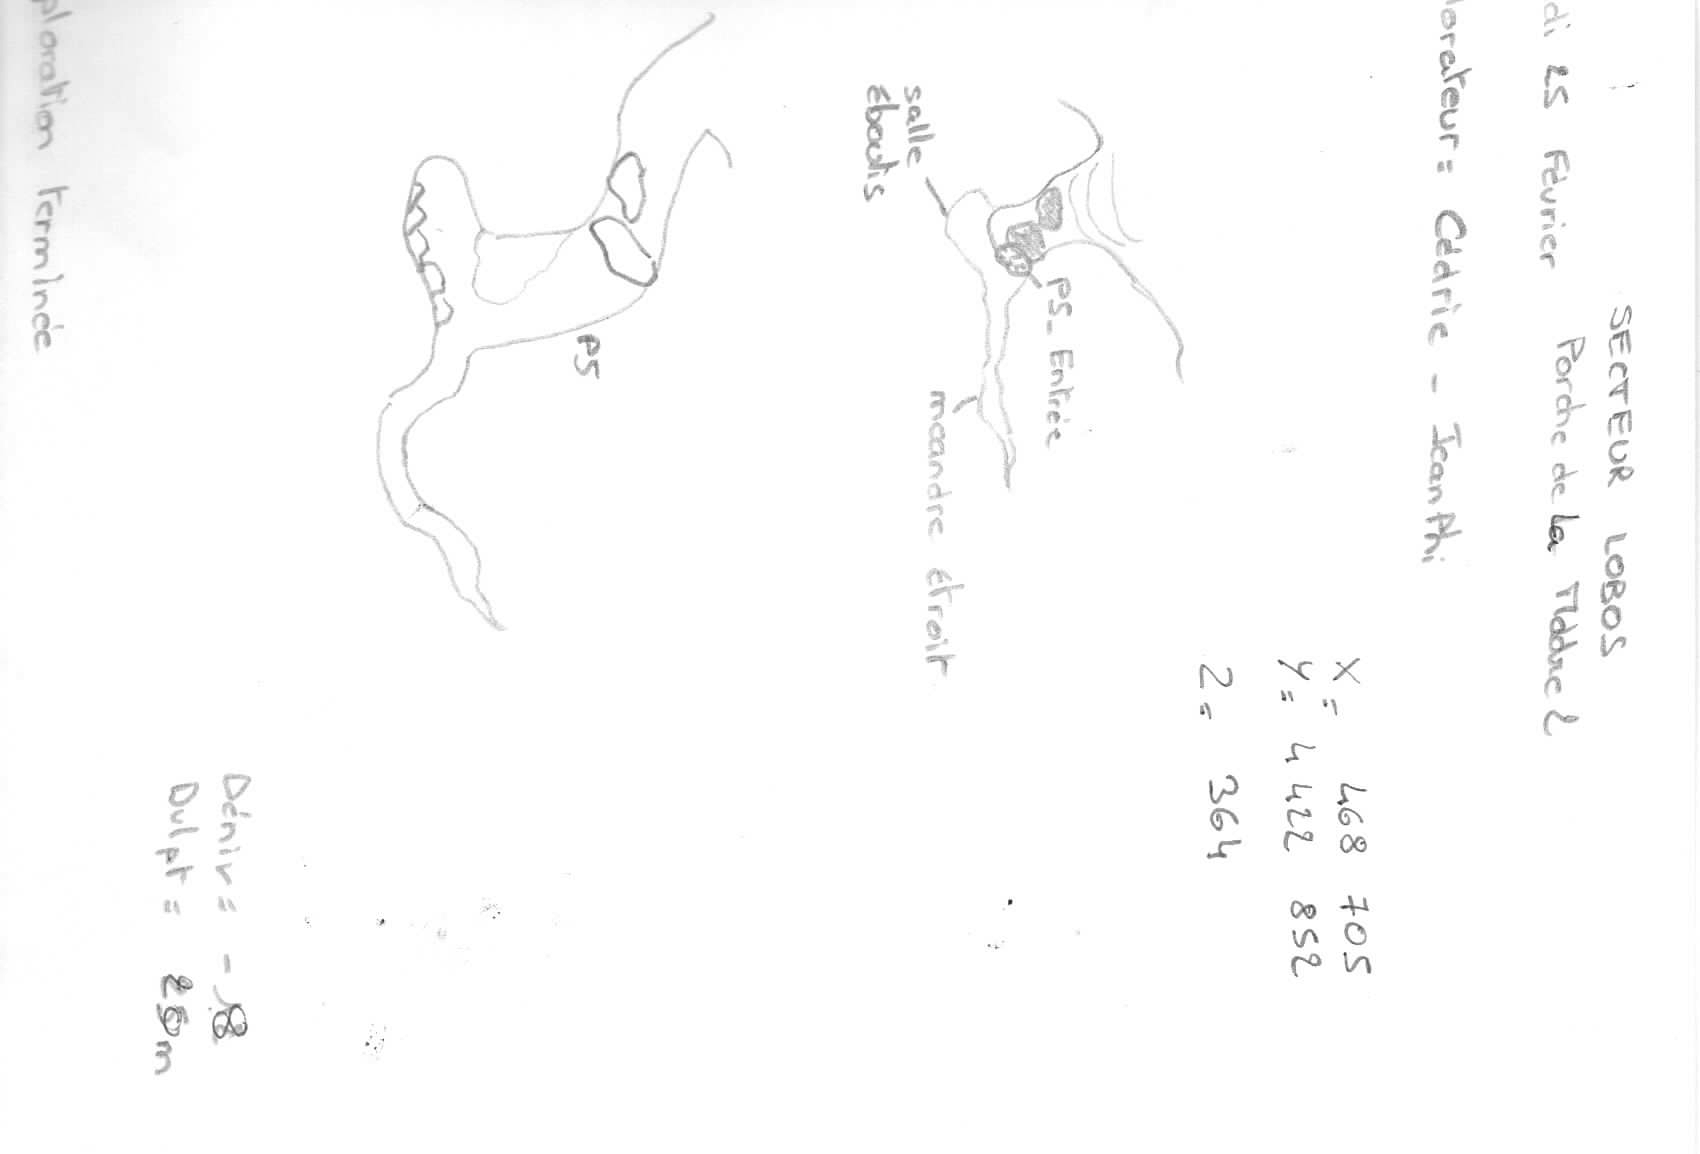 SECTEUR LOBOS
di 25 Février Porche de La Madre 2
lorateur = Cédric - JeanPhi
X = 468 705
Y = 4 422 852
Z = 364
salle
éboulis
P5_Entrée
méandre étroit
P5
Déniv = - 8
Dvlpt = 25m
ploration terminée